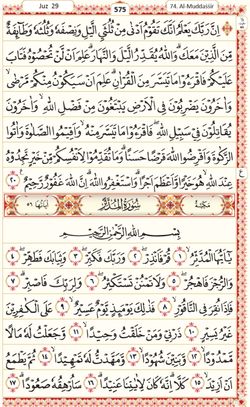 Juz 29 575 74. Al-Muddassir
إِنَّ رَبَّكَ يَعْلَمُ أَنَّكَ تَقُومُ أَدْنَىٰ مِنْ ثُلُثَيِ الَّيْلِ وَنِصْفَهُ وَثُلُثَهُ وَطَآئِفَةٌ
مِّنَ الَّذِينَ مَعَكَ ۚ وَاللَّهُ يُقَدِّرُ الَّيْلَ وَالنَّهَارَ ۚ عَلِمَ أَنْ لَّنْ تُحْصُوهُ فَتَابَ
عَلَيْكُمْ فَاقْرَءُوا مَا تَيَسَّرَ مِنَ الْقُرْآنِ ۚ عَلِمَ أَنْ سَيَكُونُ مِنْكُمْ مَّرْضَىٰ ۙ
وَآخَرُونَ يَضْرِبُونَ فِي الْأَرْضِ يَبْتَغُونَ مِنْ فَضْلِ اللَّهِ ۙ وَآخَرُونَ
يُقَاتِلُونَ فِي سَبِيلِ اللَّهِ ۖ فَاقْرَءُوا مَا تَيَسَّرَ مِنْهُ ۙ وَأَقِيمُوا الصَّلَوٰةَ وَآتُوا
الزَّكَوٰةَ وَأَقْرِضُوا اللَّهَ قَرْضًا حَسَنًا ۚ وَمَا تُقَدِّمُوا لِأَنْفُسِكُمْ مِّنْ خَيْرٍ تَجِدُوهُ
عِنْدَ اللَّهِ هُوَ خَيْرًا وَّأَعْظَمَ أَجْرًا ۚ وَاسْتَغْفِرُوا اللَّهَ ۖ إِنَّ اللَّهَ غَفُورٌ رَّحِيمٌ ٢٠
سُورَةُ الْمُدَّثِّرِ مَكِّيَّةٌ
بِسْمِ اللَّهِ الرَّحْمَٰنِ الرَّحِيمِ
يَا أَيُّهَا الْمُدَّثِّرُ ١ قُمْ فَأَنْذِرْ ٢ وَرَبَّكَ فَكَبِّرْ ٣ وَثِيَابَكَ فَطَهِّرْ ٤
وَالرُّجْزَ فَاهْجُرْ ٥ وَلَا تَمْنُنْ تَسْتَكْثِرُ ٦ وَلِرَبِّكَ فَاصْبِرْ ٧ فَإِذَا نُقِرَ
فِي النَّاقُورِ ٨ فَذَٰلِكَ يَوْمَئِذٍ يَوْمٌ عَسِيرٌ ٩ عَلَى الْكَافِرِينَ
غَيْرُ يَسِيرٍ ١٠ ذَرْنِي وَمَنْ خَلَقْتُ وَحِيدًا ١١ وَجَعَلْتُ لَهُ مَالًا
مَّمْدُودًا ١٢ وَّبَنِينَ شُهُودًا ١٣ وَّمَهَّدْتُ لَهُ تَمْهِيدًا ١٤ ثُمَّ يَطْمَعُ
أَنْ أَزِيدَ ١٥ كَلَّا ۖ إِنَّهُ كَانَ لِآيَاتِنَا عَنِيدًا ١٦ سَأُرْهِقُهُ صَعُودًا ١٧